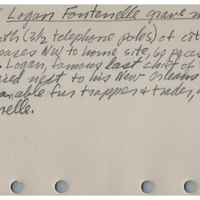 Logan Fontenelle grave
th (3½ telephone poles) of
paces NW to home site, 60 paces
. Logan, famous last chief of
ried next to his New Orleans
fur trapper & trader,
nelle.